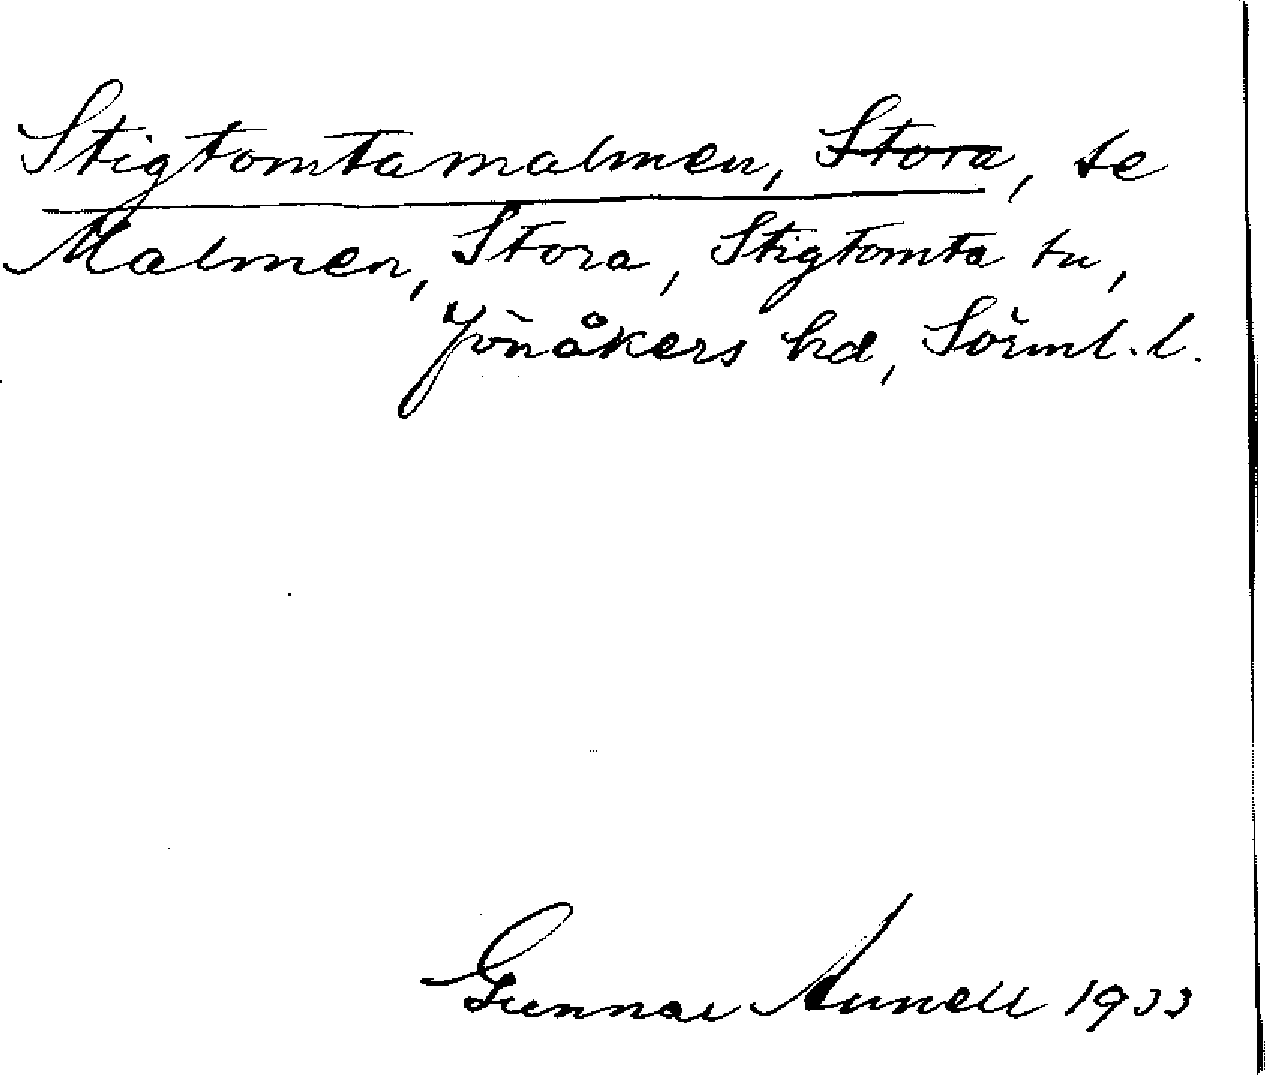 Stigtomtamalmen, Stora, se
Malmen, Stora, Stigtomta sn,
Jönåkers hd, Sörml. l.
Gunnar Aunell 1933